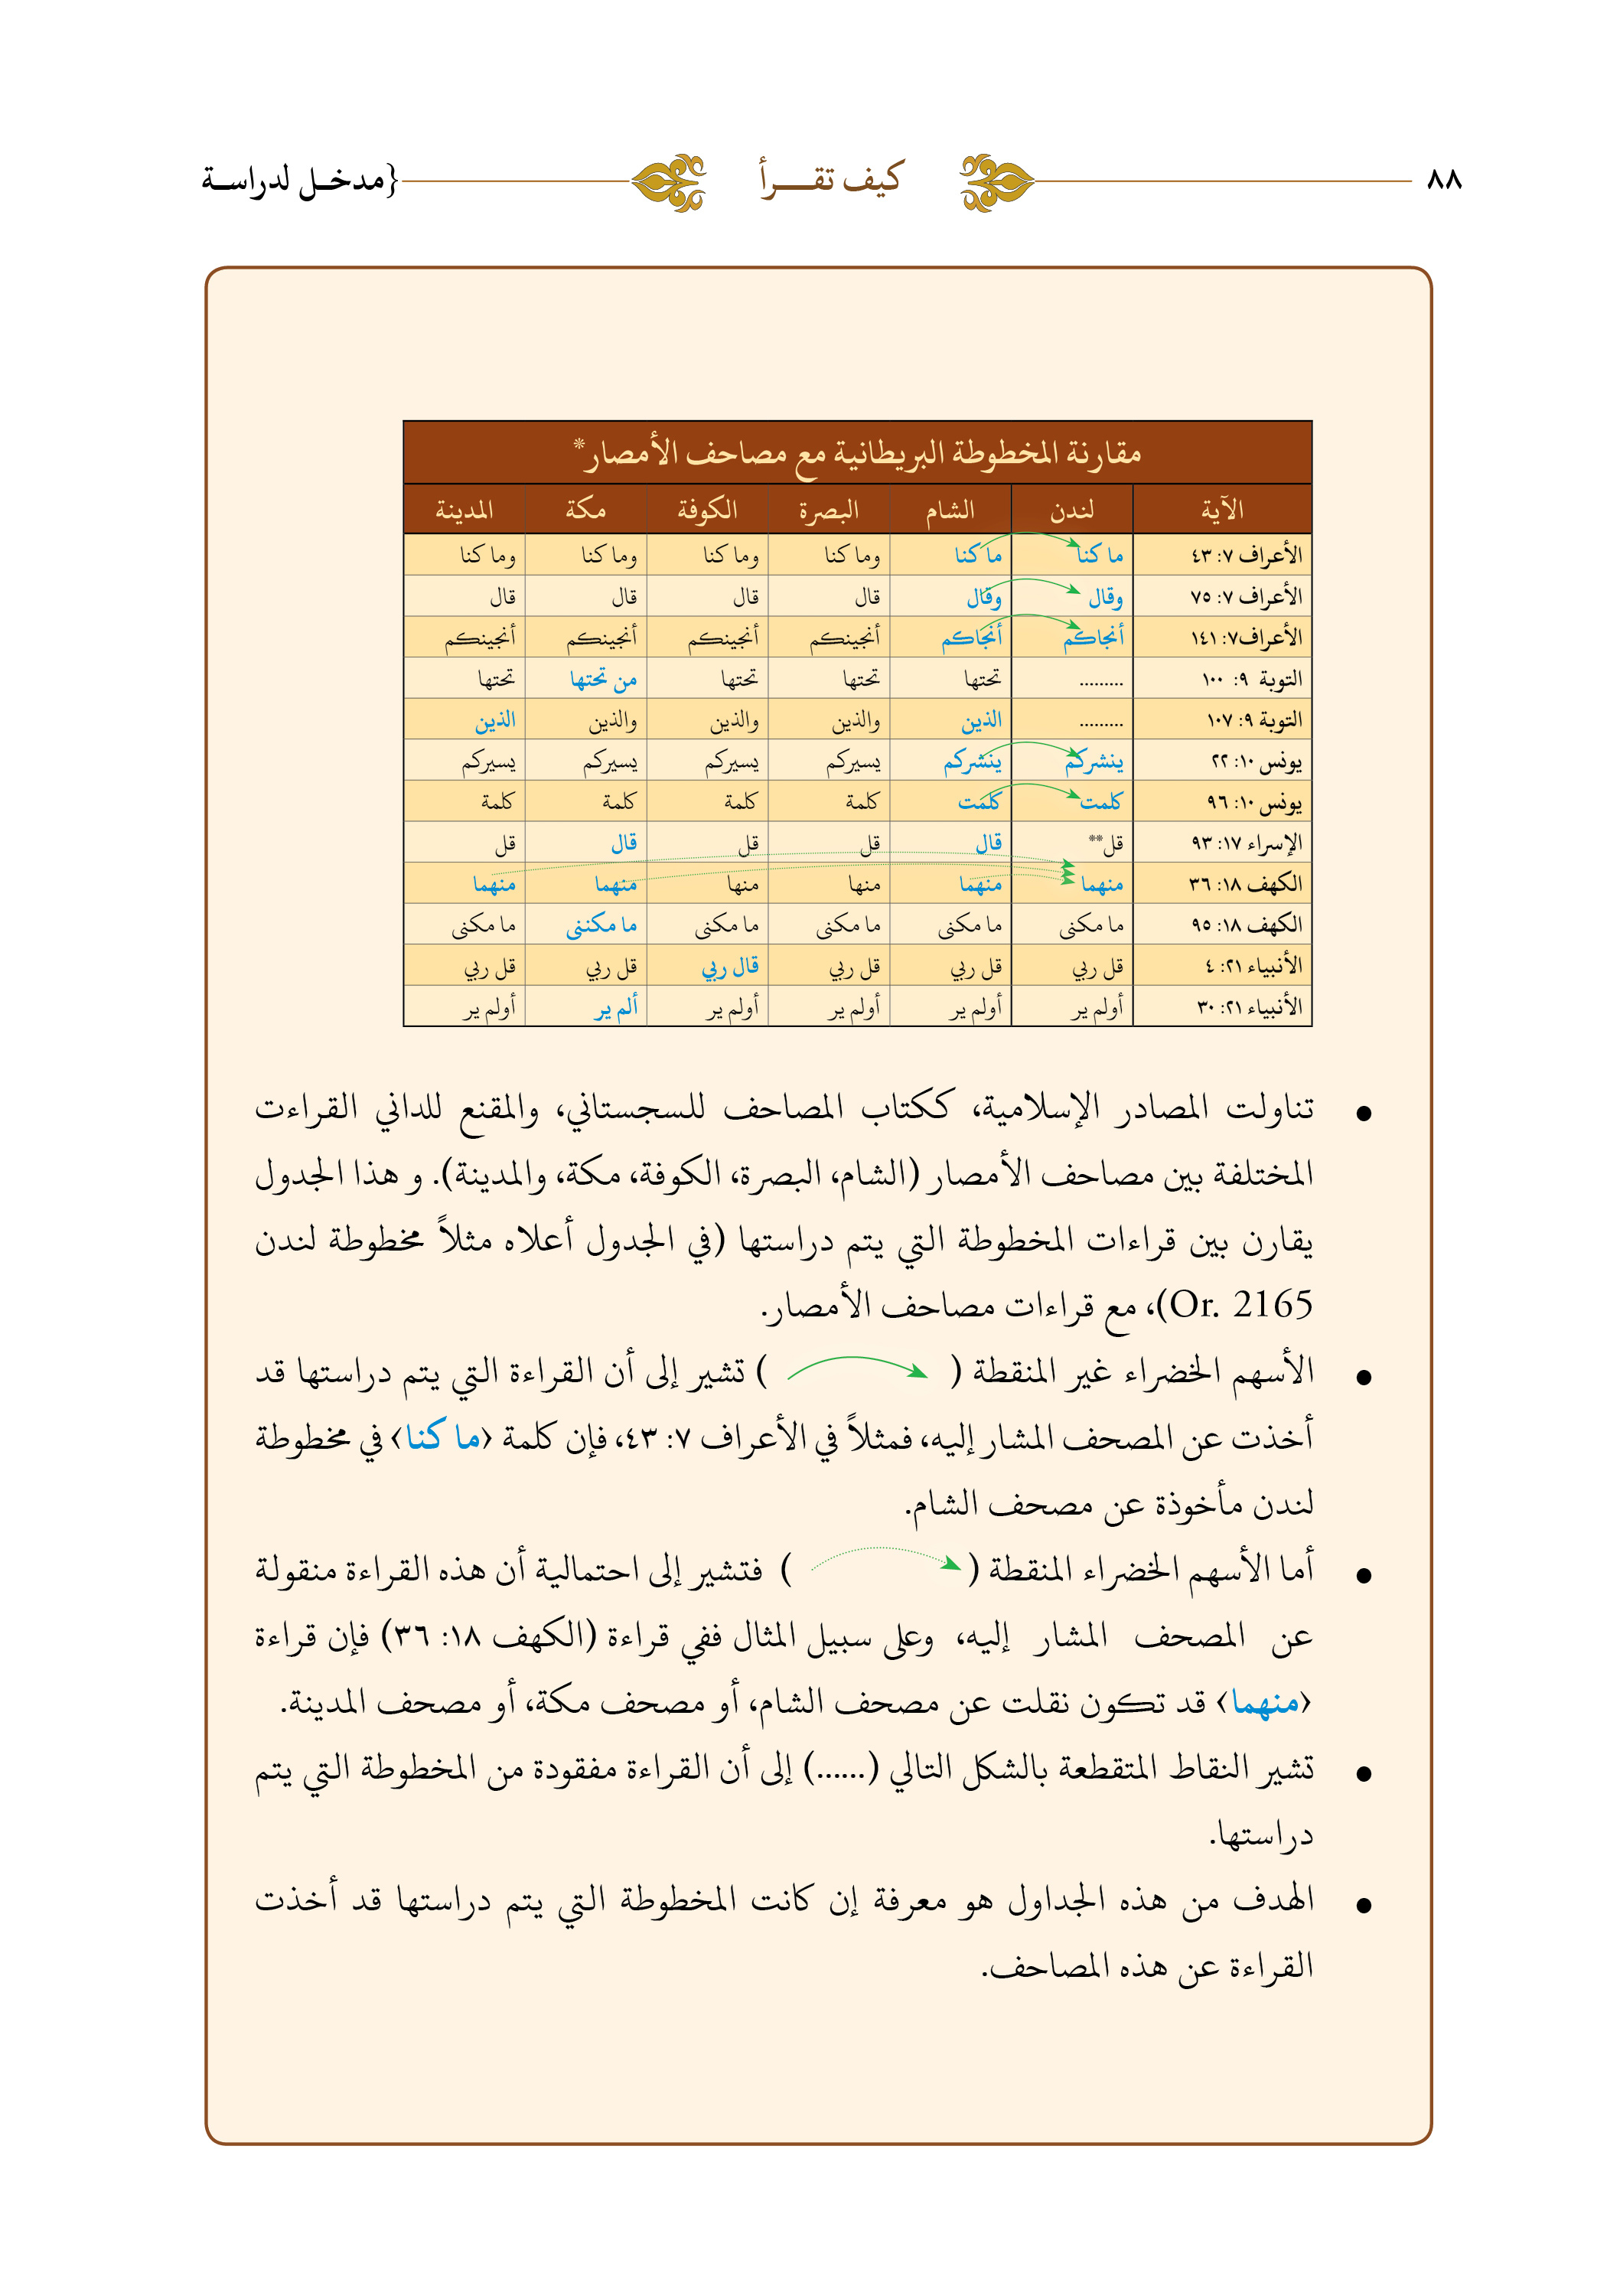 ٨٨ كيف تقـــرأ {مدخـل لدراسـة
مقارنة المخطوطة البريطانية مع مصاحف الأمصار*
الآية لندن الشام البصرة الكوفة مكة المدينة
الأعراف ٧: ٤٣ ما كنا ما كنا وما كنا وما كنا وما كنا وما كنا
الأعراف ٧: ٧٥ وقال وقال قال قال قال قال
الأعراف٧: ١٤١ أنجاكم أنجاكم أنجينكم أنجينكم أنجينكم أنجينكم
التوبة ٩: ١٠٠ ......... تحتها تحتها تحتها من تحتها تحتها
التوبة ٩: ١٠٧ ......... الذين والذين والذين والذين الذين
يونس ١٠: ٢٢ ينشركم ينشركم يسيركم يسيركم يسيركم يسيركم
يونس ١٠: ٩٦ كلمت كلمت كلمة كلمة كلمة كلمة
الإسراء ١٧: ٩٣ قل** قال قل قل قال قل
الكهف ١٨: ٣٦ منهما منهما منها منها منهما منهما
الكهف ١٨: ٩٥ ما مكنى ما مكنى ما مكنى ما مكنى ما مكننى ما مكنى
الأنبياء ٢١: ٤ قل ربي قل ربي قل ربي قال ربي قل ربي قل ربي
الأنبياء ٢١: ٣٠ أولم ير أولم ير أولم ير أولم ير ألم ير أولم ير
● تناولت المصادر الإسلامية، ككتاب المصاحف للسجستاني، والمقنع للداني القراءت
المختلفة بين مصاحف الأمصار (الشام، البصرة، الكوفة، مكة، والمدينة). و هذا الجدول
يقارن بين قراءات المخطوطة التي يتم دراستها (في الجدول أعلاه مثلاً مخطوطة لندن
Or. 2165)، مع قراءات مصاحف الأمصار.
● الأسهم الخضراء غير المنقطة ( ) تشير إلى أن القراءة التي يتم دراستها قد
أخذت عن المصحف المشار إليه، فمثلاً في الأعراف ٧: ٤٣، فإن كلمة ‹ما كنا› في مخطوطة
لندن مأخوذة عن مصحف الشام.
● أما الأسهم الخضراء المنقطة ( ) فتشير إلى احتمالية أن هذه القراءة منقولة
عن المصحف المشار إليه، وعلى سبيل المثال ففي قراءة (الكهف ١٨: ٣٦) فإن قراءة
‹منهما› قد تكون نقلت عن مصحف الشام، أو مصحف مكة، أو مصحف المدينة.
● تشير النقاط المتقطعة بالشكل التالي (......) إلى أن القراءة مفقودة من المخطوطة التي يتم
دراستها.
● الهدف من هذه الجداول هو معرفة إن كانت المخطوطة التي يتم دراستها قد أخذت
القراءة عن هذه المصاحف.